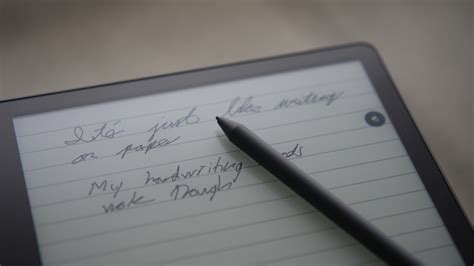 It's just like writing
on paper
My handwriting
work though